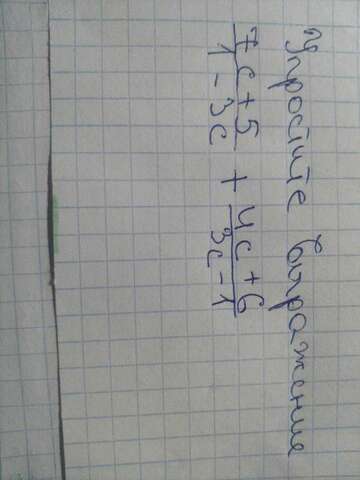 Упростите выражение
7c + 5 / 1 - 3c + 4c + 6 / 3c - 1